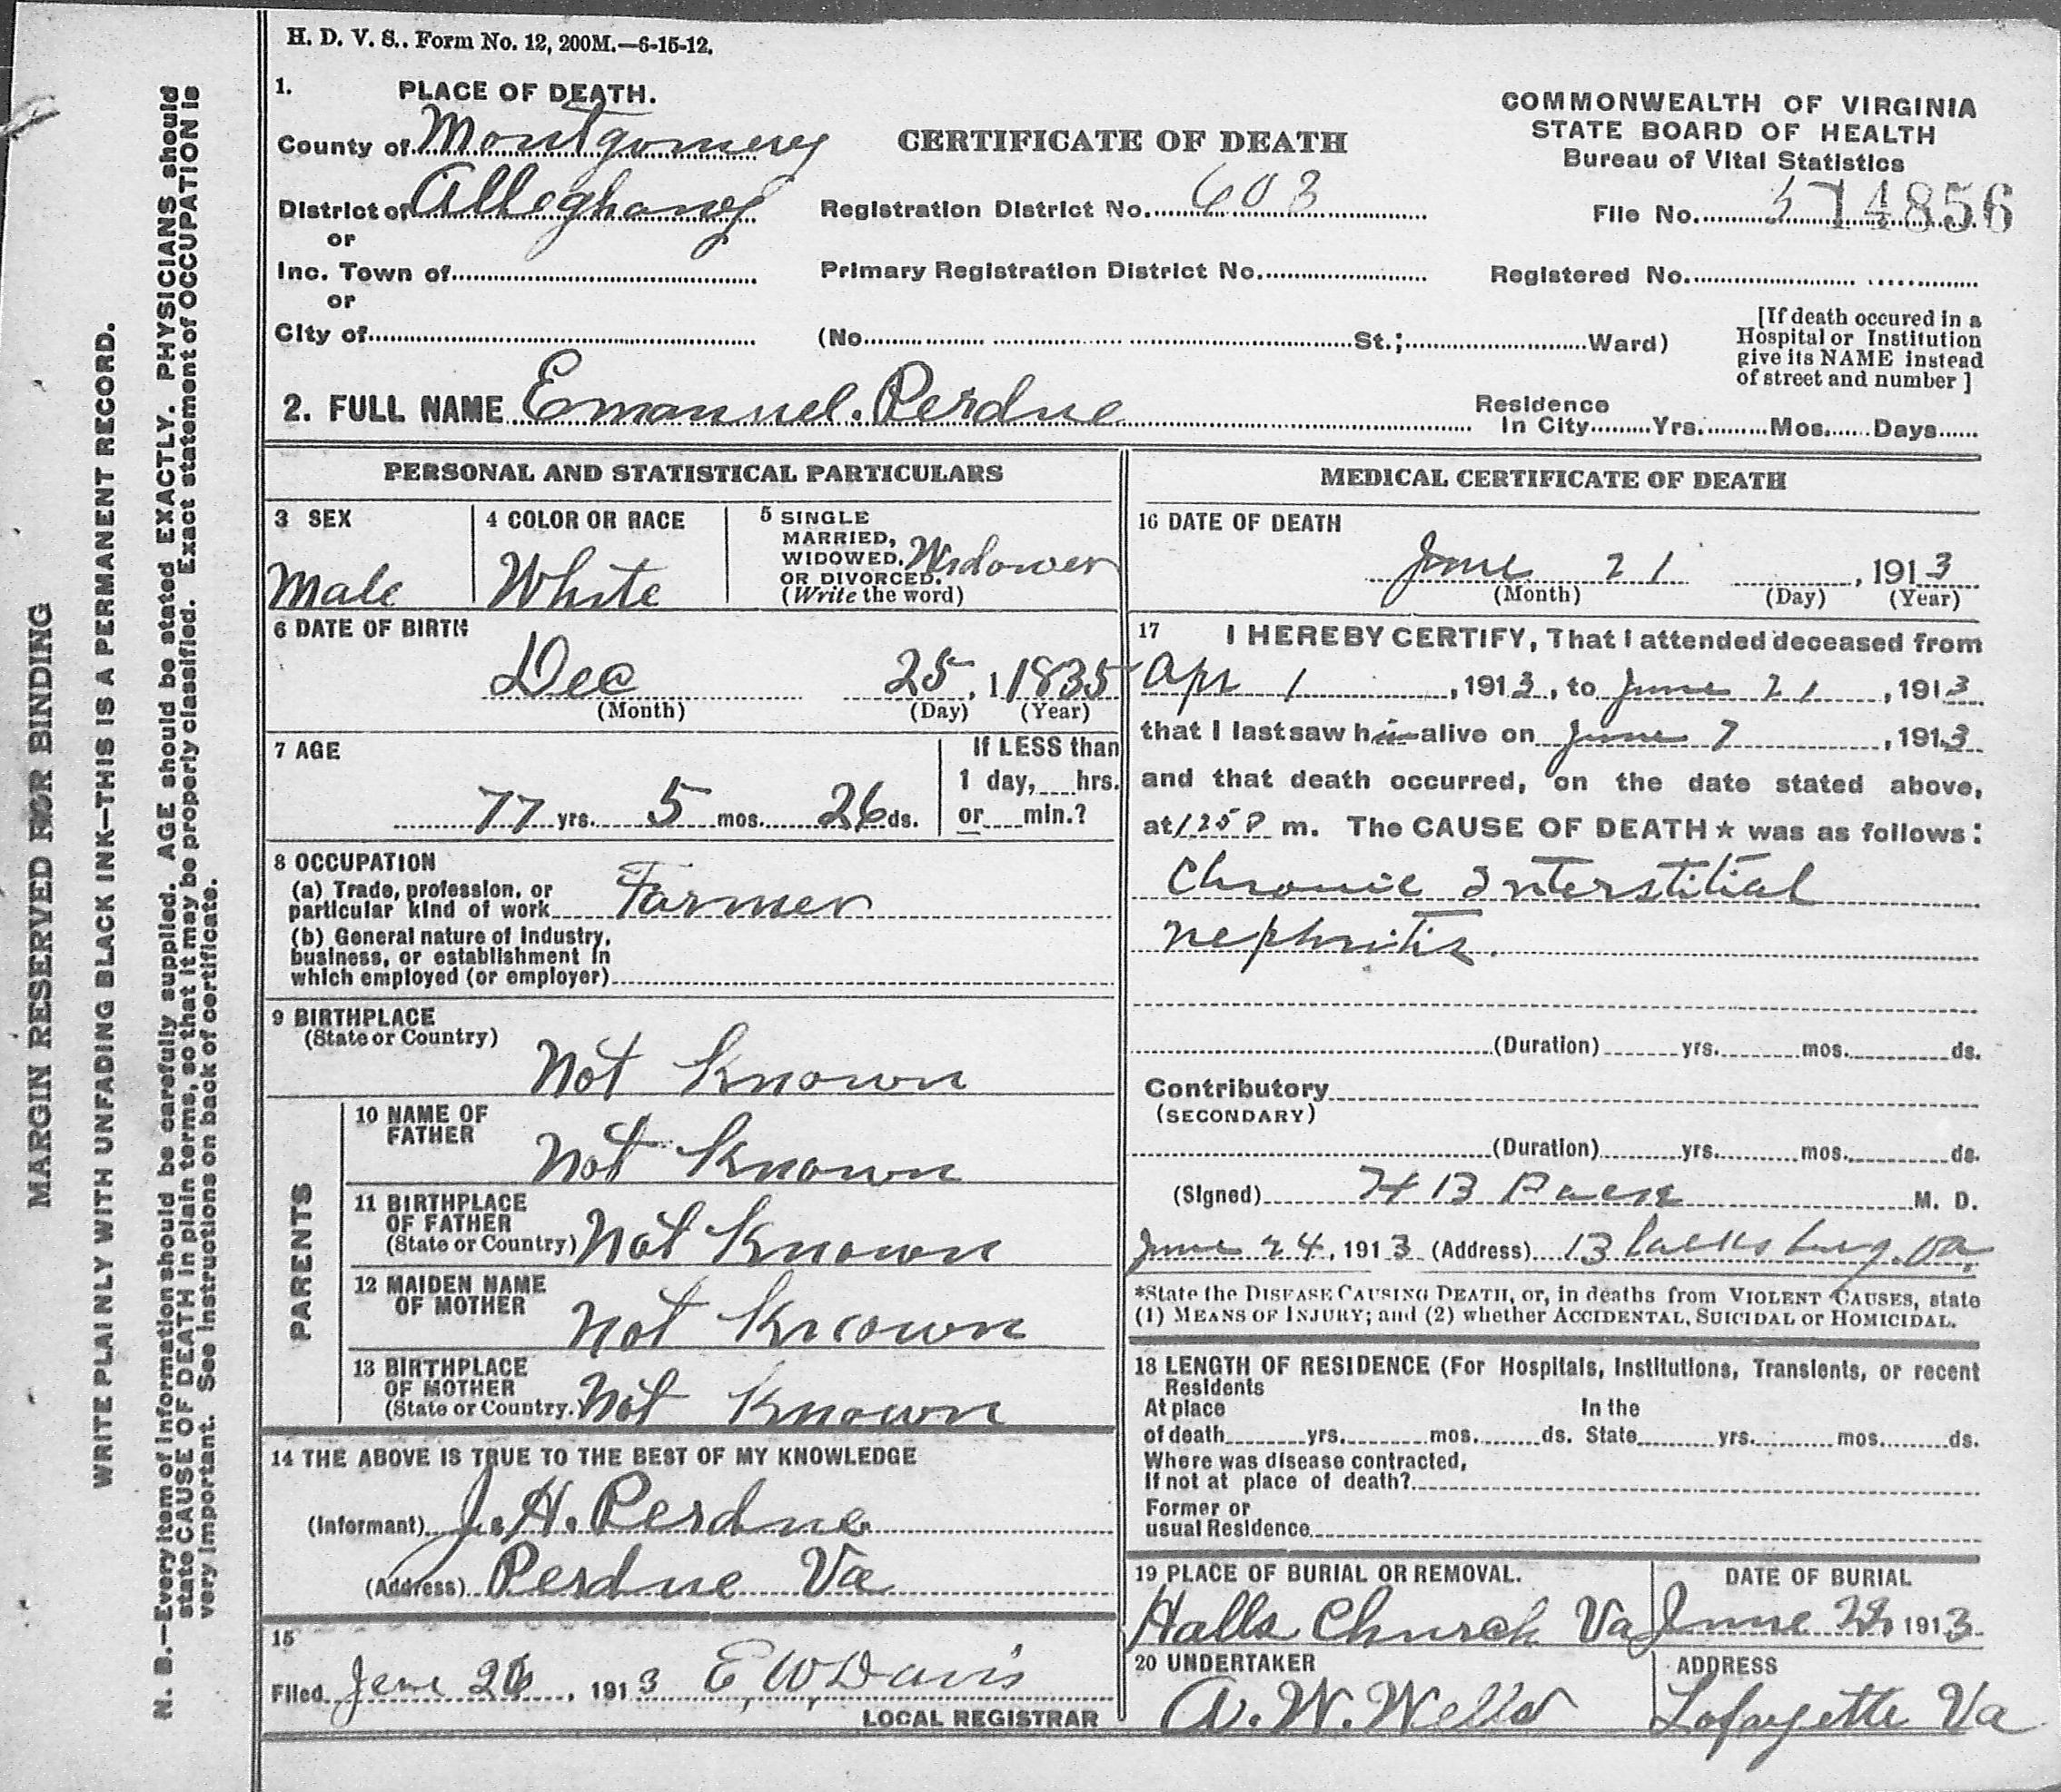 H. D. V. S.. Form No. 12, 200M.—6-15-12.
1. PLACE OF DEATH.
County of Montgomery
District of Alleghany
or
Inc. Town of
or
City of
CERTIFICATE OF DEATH
Registration District No. 603
Primary Registration District No.
(No. St.; Ward)
COMMONWEALTH OF VIRGINIA
STATE BOARD OF HEALTH
Bureau of Vital Statistics
File No. 14856
Registered No.
[If death occured in a
Hospital or Institution
give its NAME instead
of street and number ]
2. FULL NAME Emanuel Perdue
Residence
In City Yrs. Mos. Days
PERSONAL AND STATISTICAL PARTICULARS
3 SEX
Male
4 COLOR OR RACE
White
5 SINGLE
MARRIED,
WIDOWED,
OR DIVORCED.
(Write the word)
Widower
6 DATE OF BIRTH
Dec 25, 1 1835
(Month) (Day) (Year)
7 AGE
77 yrs. 5 mos. 26 ds.
If LESS than
1 day, hrs.
or min.?
8 OCCUPATION
(a) Trade, profession, or
particular kind of work Farmer
(b) General nature of Industry,
business, or establishment in
which employed (or employer)
9 BIRTHPLACE
(State or Country)
Not Known
PARENTS
10 NAME OF
FATHER
Not Known
11 BIRTHPLACE
OF FATHER
(State or Country) Not Known
12 MAIDEN NAME
OF MOTHER
Not Known
13 BIRTHPLACE
OF MOTHER
(State or Country. Not Known
14 THE ABOVE IS TRUE TO THE BEST OF MY KNOWLEDGE
(Informant) J. H. Perdue
(Address) Perdue Va
15
Filed June 26, 1913 E. W. Davis
LOCAL REGISTRAR
MEDICAL CERTIFICATE OF DEATH
16 DATE OF DEATH
June 21, 1913
(Month) (Day) (Year)
17 I HEREBY CERTIFY, That I attended deceased from
Apr 1, 1913, to June 21, 1913
that I last saw him alive on June 7, 1913
and that death occurred, on the date stated above,
at 125 P m. The CAUSE OF DEATH* was as follows:
Chronic Interstitial
nephritis.
(Duration) yrs. mos. ds.
Contributory
(SECONDARY)
(Duration) yrs. mos. ds.
(Signed) H B M. D.
June 24, 1913 (Address) Blacksburg. Va,
*State the DISEASE CAUSING DEATH, or, in deaths from VIOLENT CAUSES, state
(1) MEANS OF INJURY; and (2) whether ACCIDENTAL, SUICIDAL or HOMICIDAL.
18 LENGTH OF RESIDENCE (For Hospitals, Institutions, Transients, or recent
Residents
At place In the
of death yrs. mos. ds. State yrs. mos. ds.
Where was disease contracted,
If not at place of death?
Former or
usual Residence
19 PLACE OF BURIAL OR REMOVAL.
Halls Church Va
DATE OF BURIAL
June 22, 1913
20 UNDERTAKER
A. W. Wells
ADDRESS
Lafayette Va
MARGIN RESERVED FOR BINDING
WRITE PLAINLY WITH UNFADING BLACK INK—THIS IS A PERMANENT RECORD.
N. B.—Every item of information should be carefully supplied. AGE should be stated EXACTLY. PHYSICIANS should
state CAUSE OF DEATH in plain terms, so that it may be properly classified. Exact statement of OCCUPATION is
very important. See instructions on back of certificate.